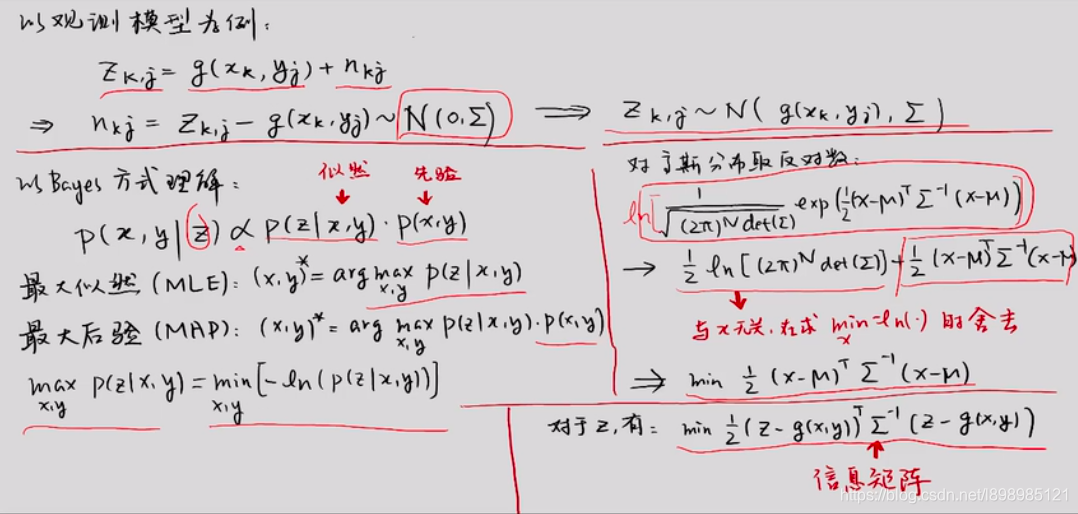 以观测模型为例:
z_{k,j} = g(x_k, y_j) + n_{kj}
⇒ n_{kj} = z_{k,j} - g(x_k, y_j) ~ N(0, Σ) ⟹ z_{k,j} ~ N( g(x_k, y_j), Σ )
以Bayes方式理解:
似然 先验
p(x, y | z) ∝ p(z | x, y) · p(x, y)
最大似然 (MLE): (x, y)^* = arg max_{x,y} p(z | x, y)
最大后验 (MAP): (x, y)^* = arg max_{x,y} p(z | x, y) · p(x, y)
max_{x,y} p(z | x, y) = min_{x,y} [-ln(p(z | x, y))]
对高斯分布取反对数:
ln[ 1/√((2π)^N det(Σ)) exp(½(x-μ)^T Σ^{-1} (x-μ))
→ ½ ln[(2π)^N det(Σ)] + ½ (x-μ)^T Σ^{-1} (x-μ
与x无关, 在求 min_x -ln(·) 时舍去
⟹ min ½ (x-μ)^T Σ^{-1} (x-μ)
对于z, 有: min ½ (z - g(x,y))^T Σ^{-1} (z - g(x,y))
信息矩阵
https://blog.csdn.net/l898985121